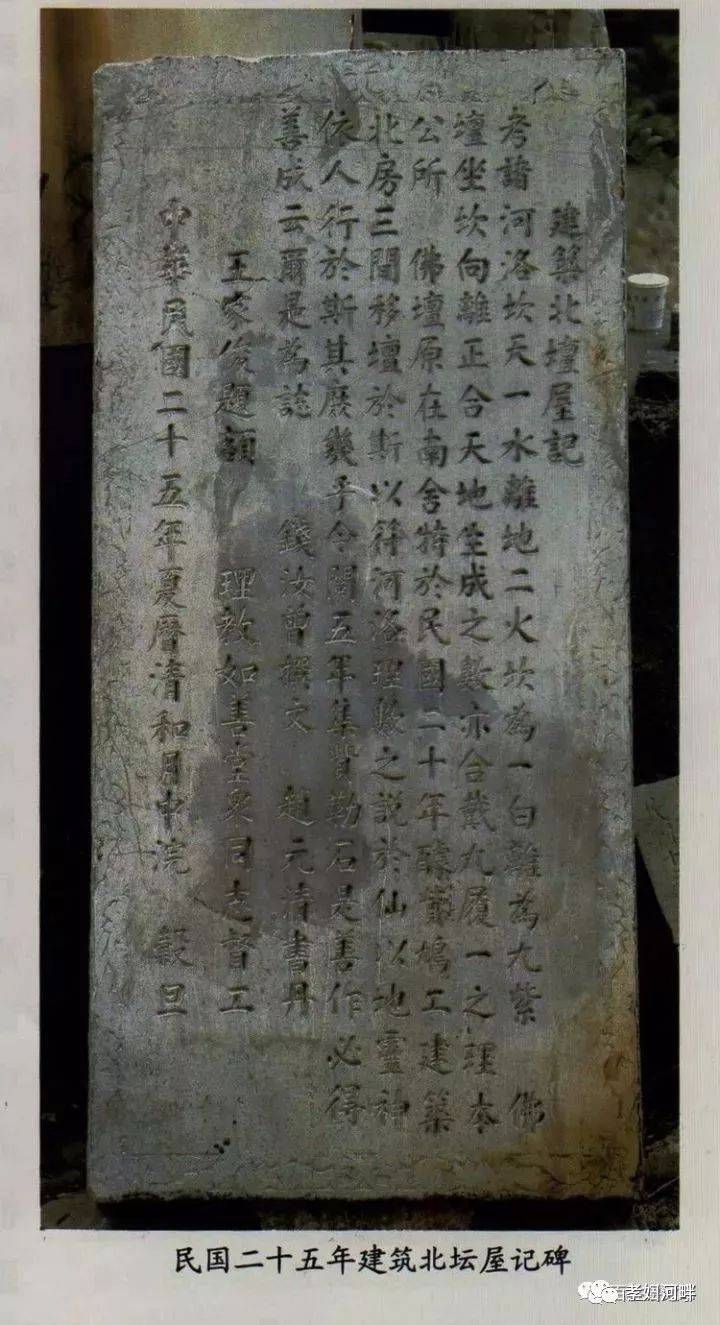 建築北壇屋記
考諸河洛坎天一水離地二火坎為一白離為九紫　佛
壇坐坎向離正合天地生成之數亦合戴九履一之理本
公所　佛壇原在南舍特於民國二十年醵資鳩工建築
北房三間移壇於斯以符河洛理數之說於仙以地靈神
依人行於斯其庶幾乎今閱五年集貲勒石是善作必得
善成云爾是為誌　錢汝曾撰文　趙元清書丹
王家　題額　理教如善堂眾同志督工
中華民國二十五年夏曆清和月中浣　穀旦
民国二十五年建筑北坛屋记碑
百孝妇河畔